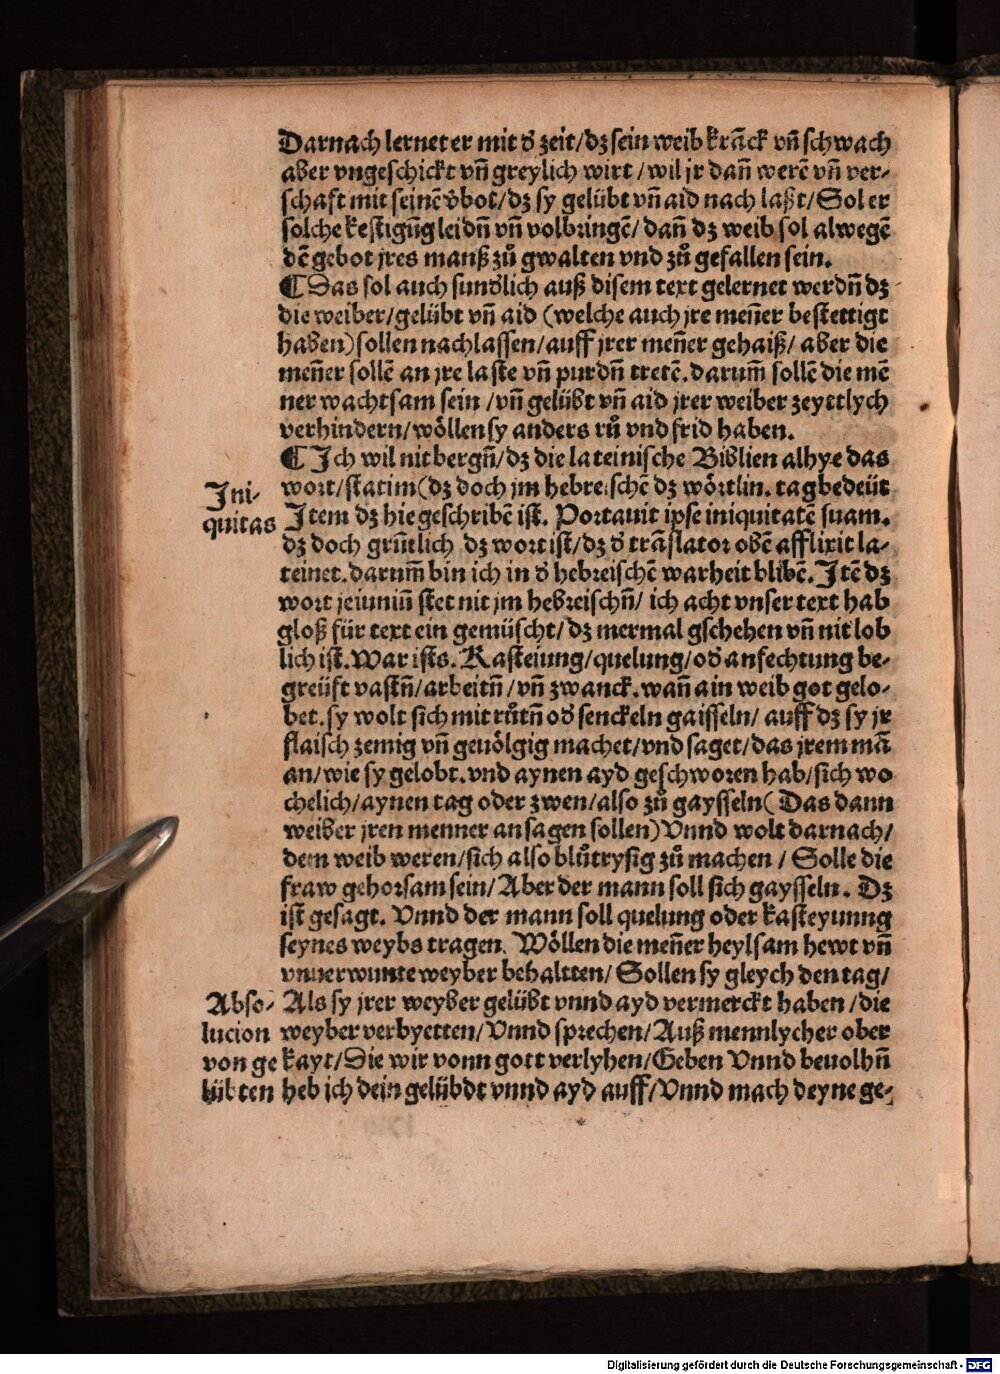 Darnach lernet er mit d̕ zeit/dz sein weib krāck vn̄ schwach
aber vngeschickt vn̄ greylich wirt /wil jr dan̄ werē vn̄ ver⸗
schaft mit seinē v̕bot/dz sy gelübt vn̄ aid nach laßt/Sol er
solche kestigūg leidn̄ vn̄ volbringē/ dan̄ dz weib sol alwegē
dē gebot jres manß zů gwalten vnd zů gefallen sein.
¶ Das sol auch sund̕lich auß disem text gelernet werdn̄ dz
die weiber/gelübt vn̄ aid (welche auch jre men̄er bestettigt
haben) sollen nachlassen/auff jrer men̄er gehaiß/ aber die
men̄er sollē an jre laste vn̄ purdn̄ tretē. darum̄ sollē die mē
ner wachtsam sein /vn̄ gelübt vn̄ aid jrer weiber zeyttlych
verhindern/wöllen sy anders rů vnd frid haben.
¶ Ich wil nit bergn̄/dz die lateinische Biblien alhye das
Ini⸗
quitas
wort/statim(dz doch jm hebreischē dz wörtlin. tag bedeüt
Item dz hie geschribē ist. Portauit ipse iniquitatē suam.
dz doch grūtlich dz wort ist/dz d̕ trāslator obē afflixit la⸗
teinet. darum̄ bin ich in d̕ hebreischē warheit blibē. Itē dz
wort jeiuniū stet nit jm hebreischn̄/ ich acht vnser text hab
gloß für text ein gemüscht/dz mermal gschehen vn̄ nit lob
lich ist. War ists. Kasteiung/quelung/od̕ anfechtung be⸗
greüft vastn̄/arbeitn̄/vn̄ zwanck. wan̄ ain weib got gelo⸗
bet. sy wolt sich mit růtn̄ od̕ senckeln gaisseln/ auff dz sy jr
flaisch zemig vn̄ geuölgig machet/vnd saget/das jrem mā
an/wie sy gelobt. vnd aynen ayd geschworen hab/sich wo
chelich/aynen tag oder zwen/also zů gaysseln( Das dann
weiber jren menner ansagen sollen)Vnnd wolt darnach/
dem weib weren/sich also blůtrysig zů machen / Solle die
fraw gehorsam sein/Aber der mann soll sich gaysseln. Dz
ist gesagt. Vnnd der mann soll quelung oder kasteyunng
seynes weybs tragen. Wöllen die men̄er heylsam hewt vn̄
vnuerwunte weyber behaltten/ Sollen sy gleych den tag/
Abso⸗
lucion
von ge
lübten
Als sy jrer weyber gelübt vnnd ayd vermerckt haben /die
weyber verbyetten/Vnnd sprechen/Auß mennlycher ober
kayt/Die wir vonn gott verlyhen/Geben Vnnd beuolhn̄
heb ich dein gelübdt vnnd ayd auff/Vnnd mach deyne ge⸗
Digitalisierung gefördert durch die Deutsche Forschungsgemeinschaft - DFG